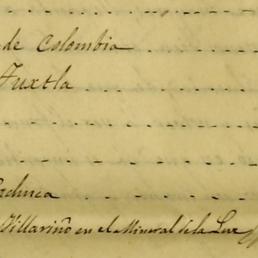 de Colombia
Tuxtla
Pachuca
Villariño en el Mineral de la Luz